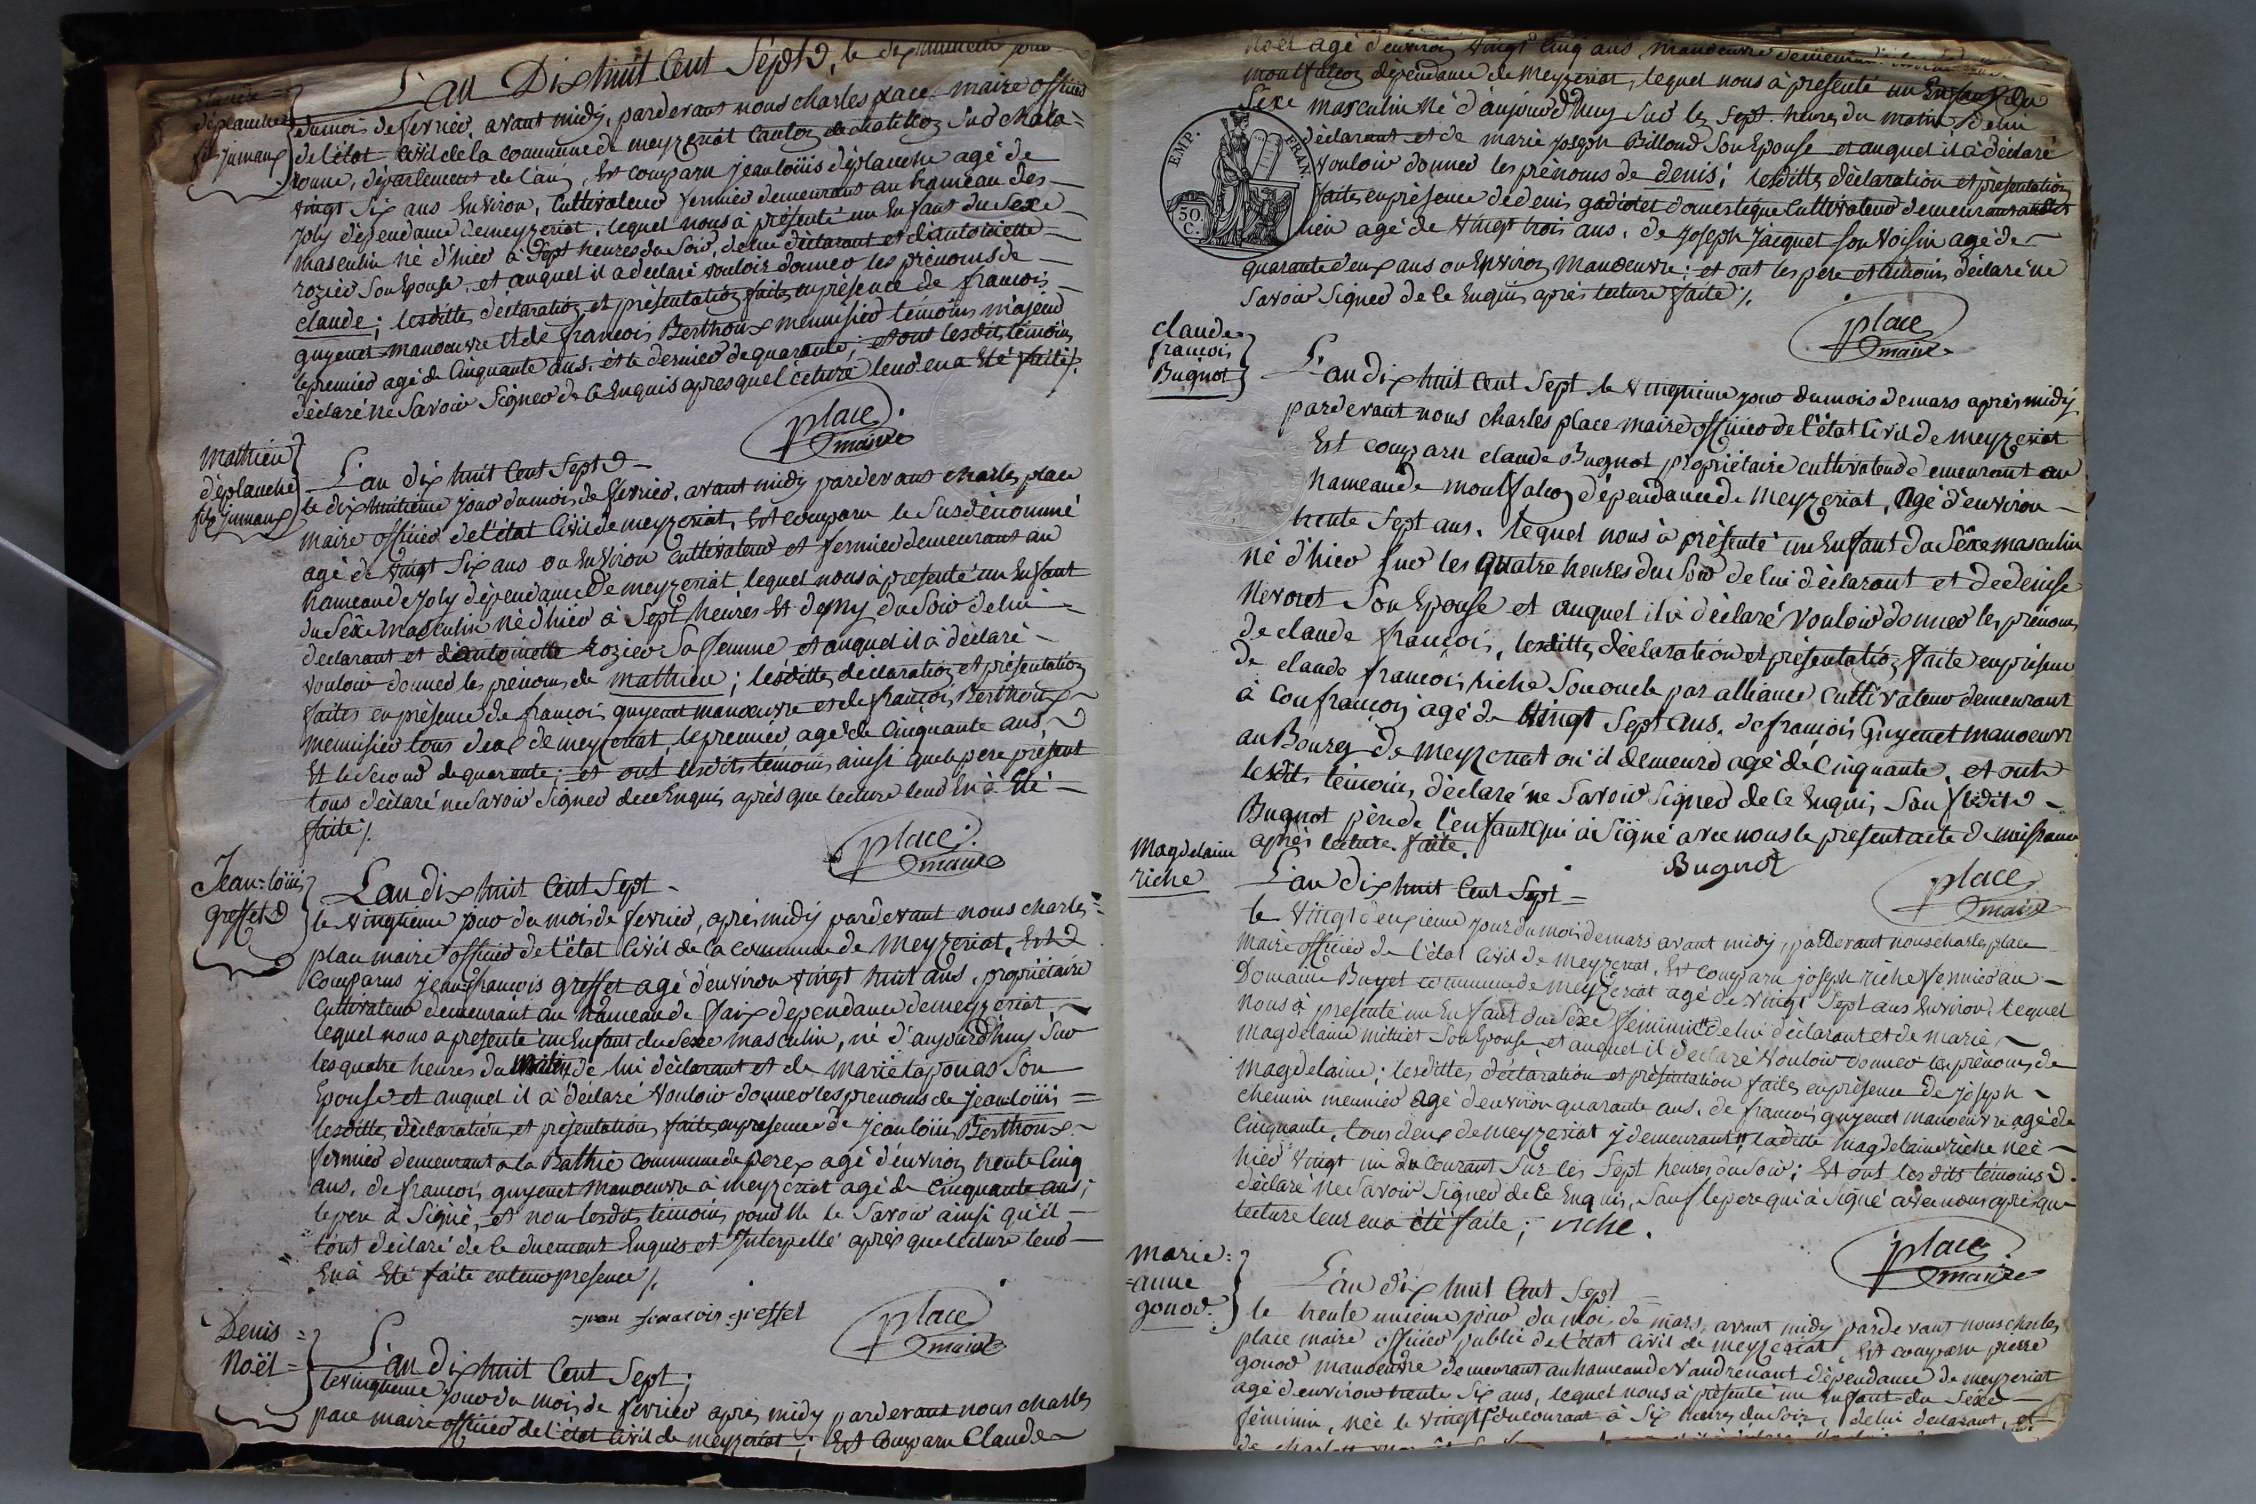 L'an Dix huit Cent Sept, le dix huitieme jour
claude =
déplanche
fils jumaux
dumois de fevrier, avant midy, pardevant nous charles place maire officier
de l'état Civil de la commune de meyzeriat Canton de chatillon Sud chala=
ronne, département de l'ain, Est comparu jean loüis déplanche agé de
vingt Six ans Environ, Cultivateur fermier demeurant au hameau des
joly dépendance de meyzeriat, lequel nous à présenté un Enfant du Sexe
masculin né d'hier à Sept heures du Soir, de lui déclarant et d'antoinette
rozier Son Epouse, et auquel il a déclaré vouloir donner les prénoms de
claude; lesdittes déclaration et présentation faites en présence de francois
guyenet manoeuvre et de francois Berthoux menuisier témoins majeurs
le premier agé de Cinquante ans, et le dernier de quarante; et ont lesdits témoins
déclaré ne Savoir Signer de ce Enquis apres que lecture leur en a été faite /.
place
maire
Mathieu
déplanche
fils jumaux
L'an dix huit Cent Sept
le dix huitieme jour du mois de fevrier, avant midy pardevant charles place
maire officier de l'état Civil de meyzeriat, Est comparu le Susdénommé
agé de vingt Six ans ou Environ Cultivateur et fermier demeurant au
hameau de Joly dépendance De meyzeriat lequel nous à présenté un Enfant
du Séxe masculin né d'hier à Sept heures et demy du Soir de lui
declarant et d'antoinette Rozier Sa femme et auquel il à déclaré
vouloir donner les prénoms de mathieu; lesdittes déclaration et présentation
faites en présence de françois guyenet manoeuvre et de françois Berthoux
menuisier tous deux de meyzeriat, le premier agé de Cinquante ans
Et le Second de quarante; et ont lesdits témoins ainsi que le pere présent
tous déclaré ne Savoir Signer de ce Enquis après que lecture leur En à été
faite /.
place
maire
Jean=loüis
greffet
L'an dix huit Cent Sept
le vingtieme jour du mois de fevrier, après midy pardevant nous charles
place maire officier de l'état Civil de la commune de meyzeriat, Est
comparus jean francois greffet agé d'environ vingt huit ans, propriétaire
Cultivateur demeurant au hameau de faix dependance de meyzeriat
lequel nous a présenté un Enfant du Sexe masculin, né d'aujourd'huy Sur
les quatre heures du matin de lui déclarant et de marie lapouas Son
Epouse et auquel il à déclaré vouloir donner les prenoms de jean loüis
lesdittes déclaration et présentation faites en présence de jean loüis Berthoux
fermier demeurant a la Bathie commune de perex agé d'environ trente Cinq
ans, de francois guyenet manoeuvre à meyzeriat agé de Cinquante ans;
le pere à Signé, et non lesdits témoins pour ne le Savoir ainsi qu'il
l'ont déclaré de ce duement Enquis et Interpellé après que lecture leur
En à été faite en leur presence /.
jean francois greffet
place
maire
Denis
Noël
L'an dix huit Cent Sept;
le vingtieme jour du mois de fevrier après midy pardevant nous charles
place maire officier de l'état Civil de meyzeriat; Est Comparu Claude
Noël agé d'environ vingt Cinq ans, manoeuvre demeurant
montfalcon dépendance de meyzeriat, lequel nous à présenté un Enfant du
Séxe masculin né d'aujourd'huy Sur les Sept heures du matin de lui
EMP. FRAN.
50. C.
déclarant et de marie joseph Billoud Son Epouse et auquel il à déclaré
vouloir donner les prénoms de denis; lesdittes déclaration et présentation
faites en présence de denis gadiolet domestique Cultivateur demeurant audit
lieu agé de vingt trois ans, de Joseph Jacquet Son voisin agé de
quarante deux ans ou Environ manoeuvre; et ont les pere et témoins déclaré ne
Savoir Signer de ce Enquis après lecture faite /.
place
maire
claude
françois
Bugnot
L'an dix huit Cent Sept le vingtieme jour du mois de mars après midy
pardevant nous charles place maire officier de l'état Civil de meyzeriat
Est comparu claude Bugnot propriétaire cultivateur demeurant au
hameau de montfalcon dépendance de meyzeriat, agé d'environ
trente Sept ans, lequel nous à présenté un Enfant du Séxe masculin
né d'hier Sur les quatre heures du Soir de lui déclarant et de denise
Nevoret Son Epouse et auquel il à déclaré vouloir donner les prénoms
de claude françois, lesdittes déclaration et présentation faite en présence
de claude françois riche Son oncle par alliance cultivateur demeurant
à confrançon agé de vingt Sept ans, de françois Guyenet manoeuvre
au Bourg de meyzeriat où il demeure agé de Cinquante, et ont
lesdits témoins déclaré ne Savoir Signer de ce Enquis, Sauf ledit
Bugnot père de l'enfant qui à Signé avec nous le présent acte de naissance
après lecture faite.
Bugnot
place
maire
Magdelaine
riche
L'an dix huit Cent Sept
le vingt deuxieme jour du mois de mars avant midy, pardevant nous charles place
maire officier de l'état Civil de meyzeriat, Est comparu joseph riche fermier au
Domaine Buyet commune de meyzeriat agé de vingt Sept ans Environ, lequel
nous à présenté un Enfant du Séxe féminin de lui déclarant et de marie
magdelaine mittiet Son Epouse et auquel il déclaré vouloir donner les prénoms de
magdelaine; lesdittes déclaration et présentation faites en présence de Joseph
chemin meunier agé d'environ quarante ans, de francois guyenet manoeuvre agé de
Cinquante, tous deux de meyzeriat y demeurant; laditte magdelaine riche née
hier vingt un du Courant Sur les Sept heures du Soir; Et ont lesdits témoins
déclaré ne Savoir Signer de ce Enquis, Sauf le pere qui à Signé avec nous après que
lecture leur en a été faite; riche.
place
maire
marie=
=anne
gonod.
L'an dix huit Cent Sept
le trente unieme jour du mois de mars, avant midy pardevant nous charles
place maire officier public de l'état Civil de meyzeriat, Est comparu pierre
gonod manoeuvre demeurant au hameau de vaudrenant dépendance de meyzeriat
agé d'environ trente Six ans, lequel nous à présenté un Enfant du Séxe
féminin, née le vingt du courant à Six heures du Soir, de lui declarant, et